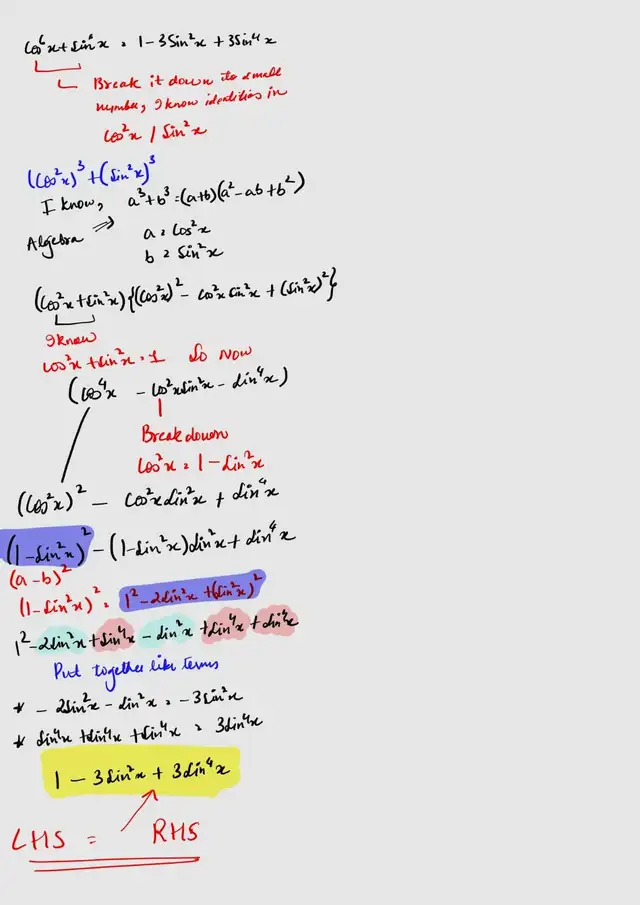 cos⁶x + sin⁶x = 1 - 3 sin²x + 3 sin⁴x
Break it down to small
number, I know identities in
cos²x / sin²x
(cos²x)³ + (sin²x)³
I know, a³+b³ = (a+b)(a² - ab + b²)
Algebra ⇒ a = cos²x
b = sin²x
(cos²x + sin²x) {(cos²x)² - cos²x sin²x + (sin²x)²}
I know
cos²x + sin²x = 1 So Now
(cos⁴x - cos²x sin²x - sin⁴x)
Break down
cos²x = 1 - sin²x
(cos²x)² - cos²x sin²x + sin⁴x
(1 - sin²x)² - (1 - sin²x) sin²x + sin⁴x
(a - b)²
(1 - sin²x)² = 1² - 2sin²x + (sin²x)²
1² - 2sin²x + sin⁴x - sin²x + sin⁴x + sin⁴x
Put together like terms
* - 2sin²x - sin²x = - 3sin²x
* sin⁴x + sin⁴x + sin⁴x = 3sin⁴x
1 - 3 sin²x + 3 sin⁴x
LHS = RHS